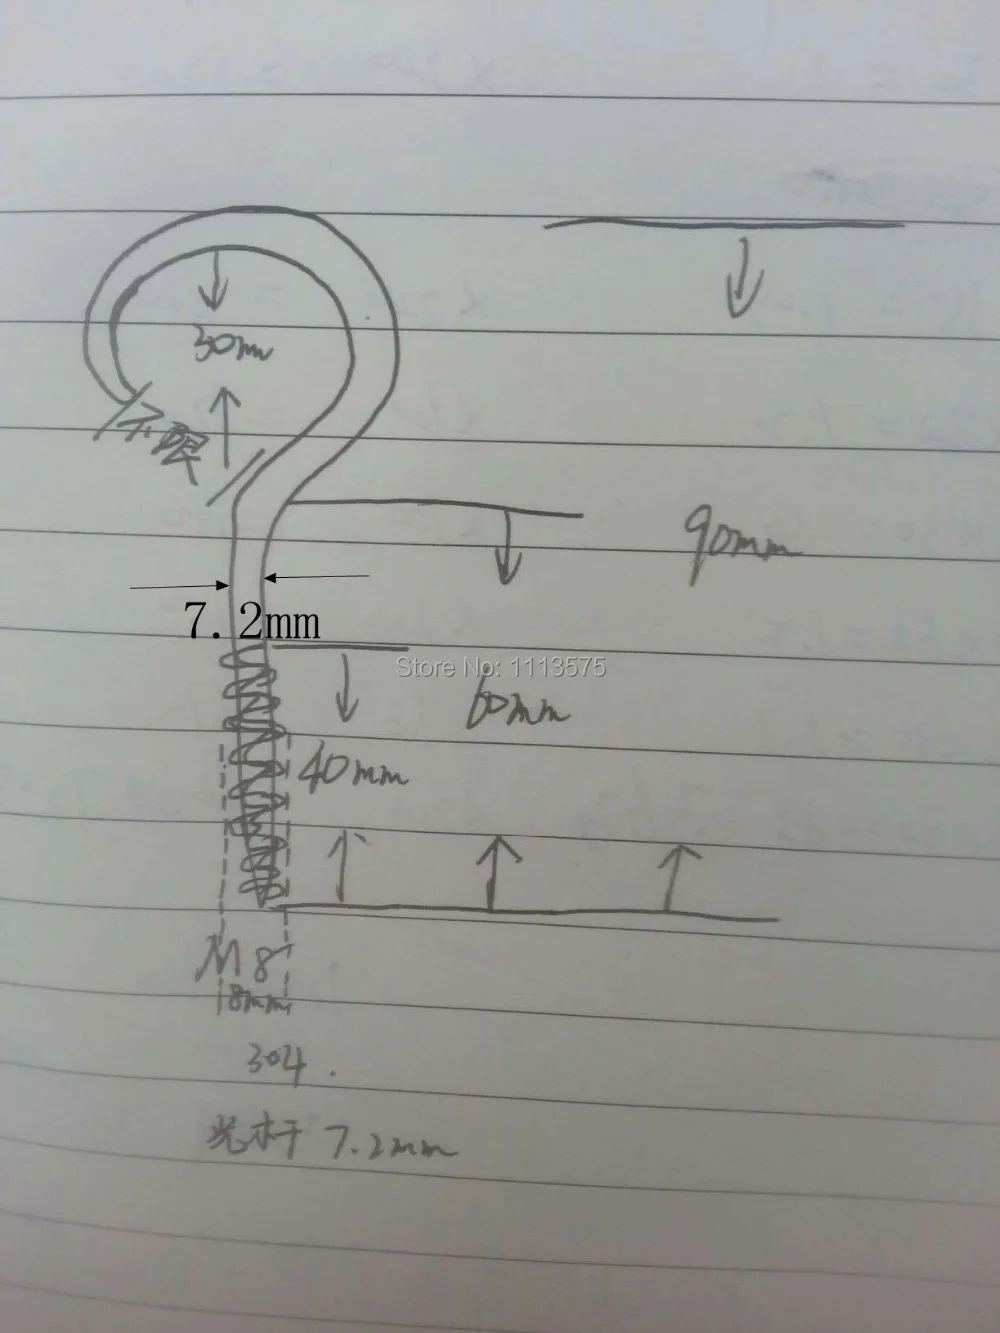 30m
不限
90mm
7.2mm
Store No: 1113575
60mm
40mm
M8
8mm
304.
光杆 7.2mm